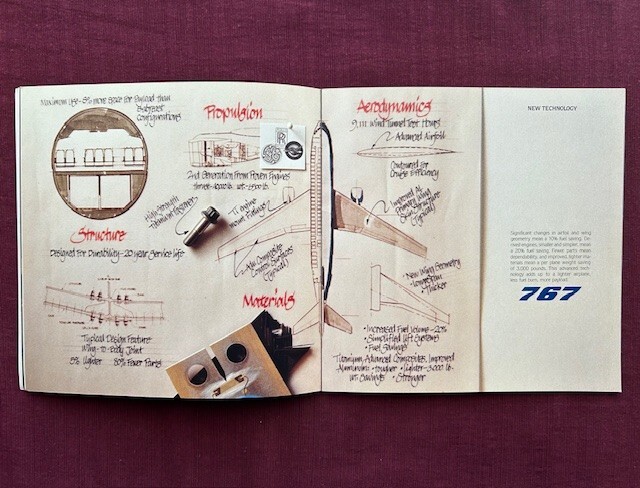 Maximum Use - 5% more space for Payload than
Configurations
Propulsion
2nd Generation From Proven Engines
High-Strength
Titanium Fastener
TI engine
mount Fittings
Structure
Designed For Durability - 20 year Service Life
Adv. Composite
Control Surfaces
(Typical)
Materials
Typical Design Feature
Wing-to-Body Joint
5% Lighter 80% Fewer Parts
Aerodynamics
Wind Tunnel Test Hours
Advanced Airfoil
Contoured for
Cruise Efficiency
Improved AL
Primary Wing
Structure
(Typical)
• New Wing Geometry
• Longer Span
• Thicker
• Increased Fuel Volume - 20%
• Simplified Lift Systems
• Fuel Savings
Titanium, Advanced Composites, Improved
Aluminums • Tougher • Lighter - 3,000 lb.
WT. Savings • Stronger
NEW TECHNOLOGY
Significant changes in airfoil and wing
geometry mean a 10% fuel saving. De-
rived engines, smaller and simpler, mean
a 20% fuel saving. Fewer parts mean
dependability, and improved, lighter ma-
terials mean a per plane weight saving
of 3,000 pounds. This advanced tech-
nology adds up to a lighter airplane,
less fuel burn, more payload.
767